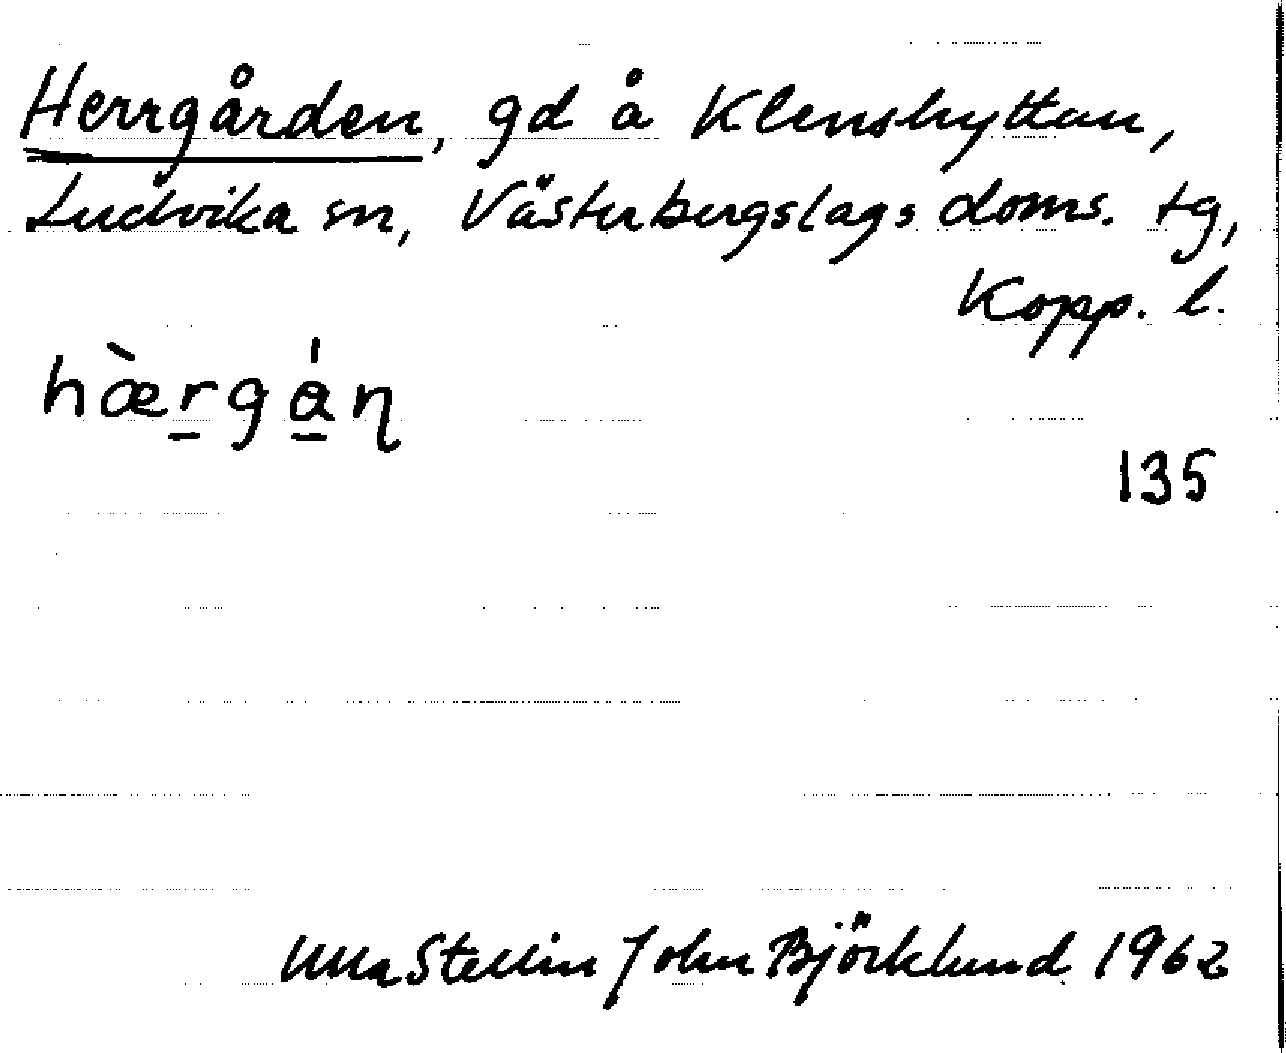 Herrgården, gd å Klenshyttan,
Ludvika sn, Västerbergslags doms. tg,
Kopp. l.
hæ̀r̲gá̲ɳ
135
Ulla Stellin John Björklund 1962